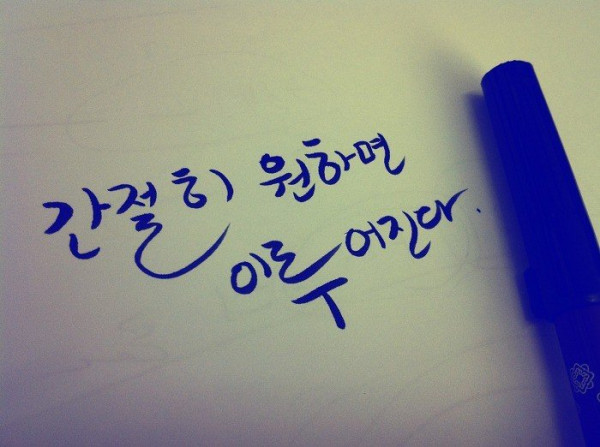 간절히 원하면
이루어진다.